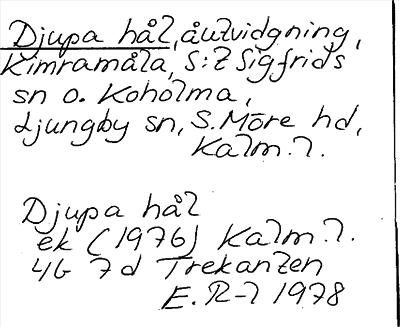 Djupa hål, åutvidgning,
Kimramåla, S:t Sigfrids
sn o. Koholma,
Ljungby sn, S. Möre hd,
Kalm. l.
Djupa hål
ek (1976) Kalm. l.
4G 7d Trekanten
E. R-l 1978